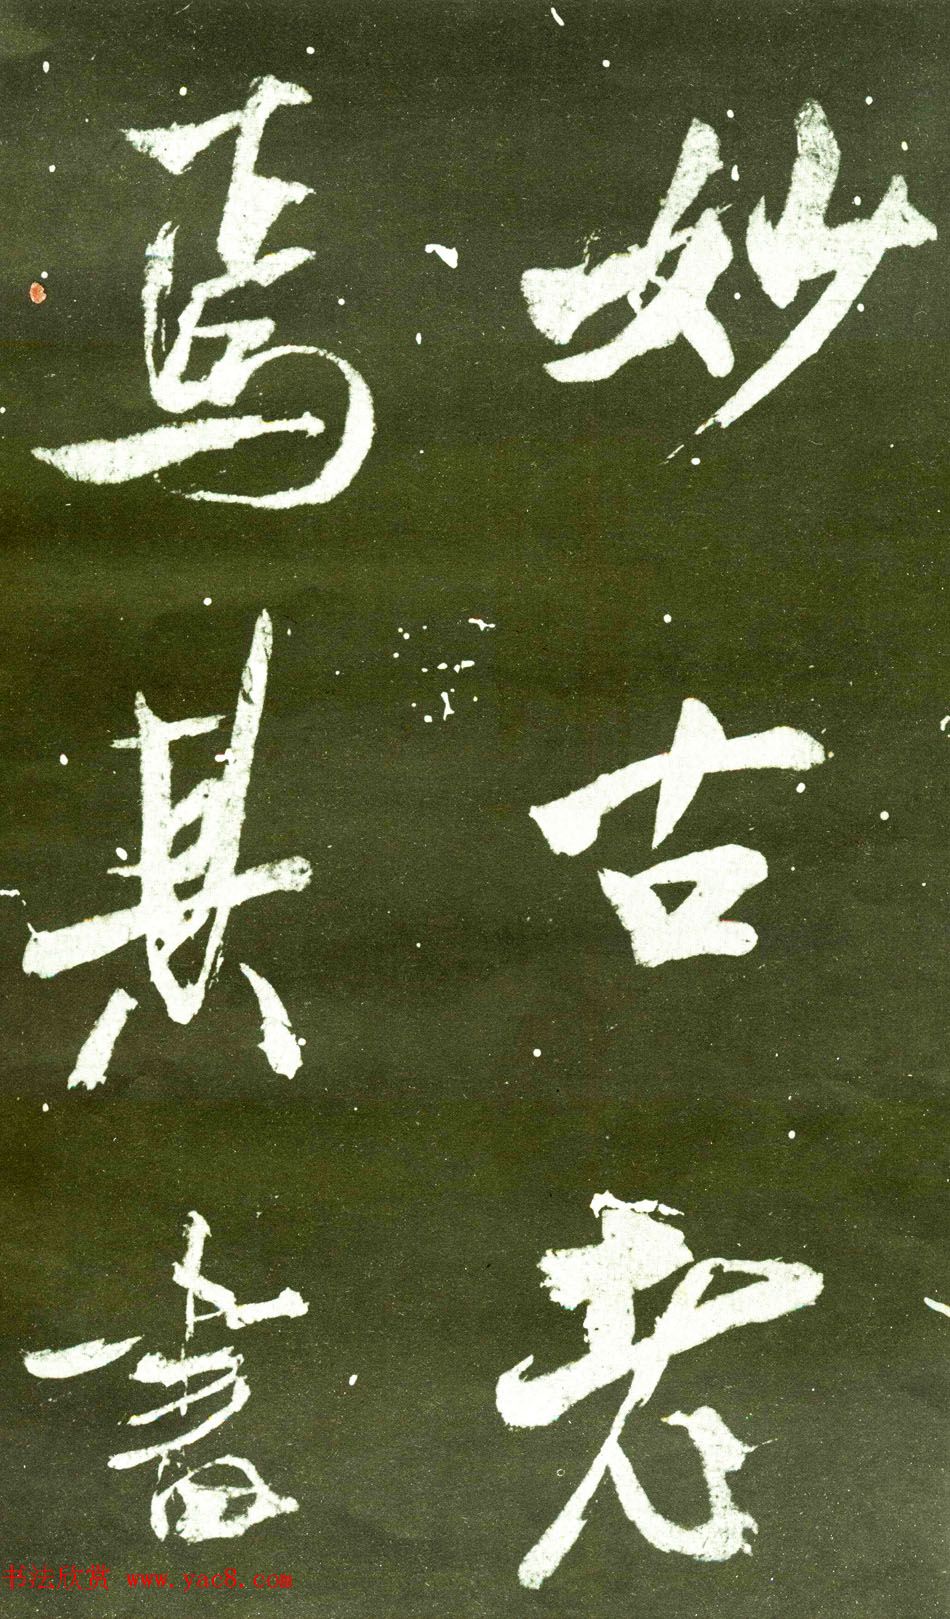 妙古老
焉其書
书法欣赏 www.yac8.com